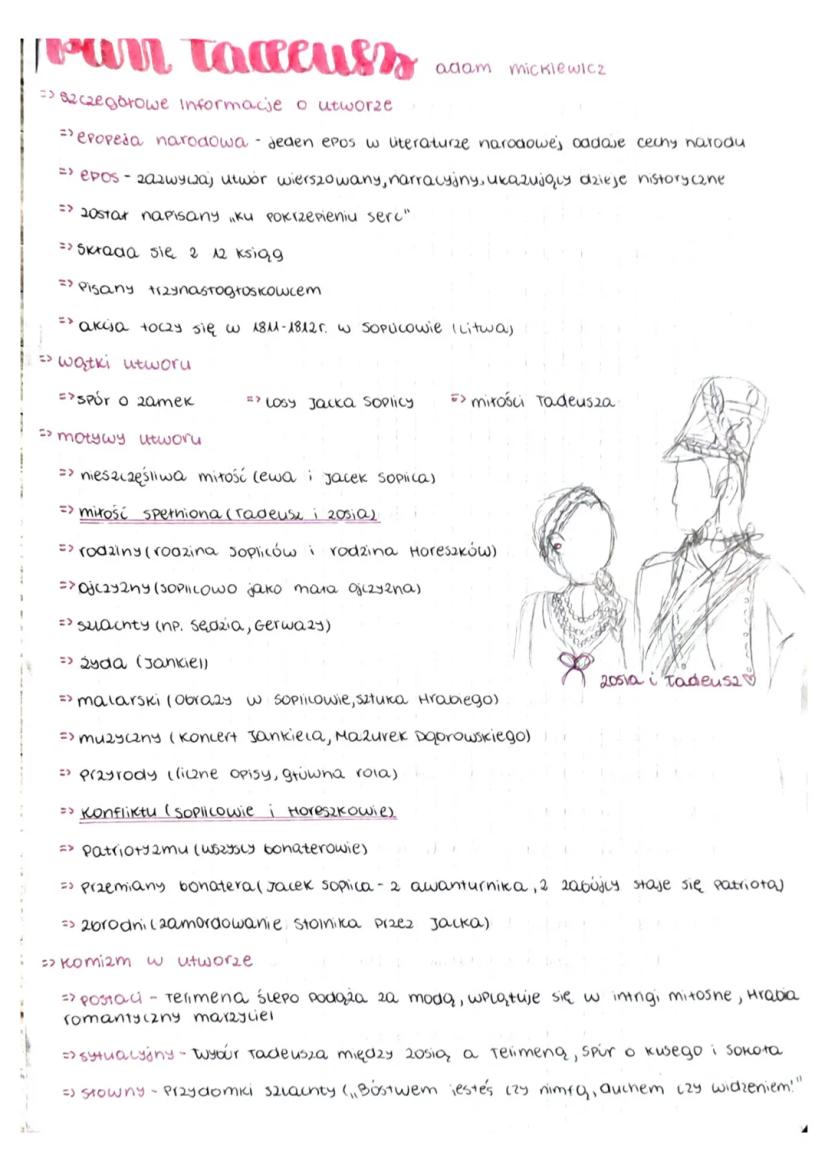 Pan Tadeusz adam mickiewicz
=> szczegółowe informacje o utworze
=> epopeja narodowa - jeden epos w literaturze narodowej oddaje cechy narodu
=> epos - zazwyczaj utwór wierszowany, narracyjny, ukazujący dzieje historyczne
=> został napisany „ku pokrzepieniu serc"
=> składa się z 12 ksiąg
=> pisany trzynastogłoskowcem
=> akcja toczy się w 1811-1812r. w Soplicowie (Litwa)
=> wątki utworu
=> spór o zamek => losy Jacka Soplicy => miłości Tadeusza
=> motywy utworu
=> nieszczęśliwa miłość (ewa i Jacek Soplica)
=> miłość spełniona (Tadeusz i Zosia)
=> rodziny (rodzina Sopliców i rodzina Horeszków)
=> ojczyzny (Soplicowo jako mała ojczyzna)
=> szlachty (np. Sędzia, Gerwazy)
=> żyda (Jankiel)
zosia i Tadeusz♡
=> malarski (Obrazy w Soplicowie, sztuka Hrabiego)
=> muzyczny (Koncert Jankiela, Mazurek Dąbrowskiego)
=> przyrody (liczne opisy, główna rola)
=> konfliktu (Soplicowie i Horeszkowie)
=> patriotyzmu (wszyscy bohaterowie)
=> przemiany bohatera (Jacek Soplica - z awanturnika, z zabójcy staje się patriotą)
=> zbrodni (zamordowanie Stolnika przez Jacka)
=> komizm w utworze
=> postaci - Telimena ślepo podąża za modą, wplątuje się w intrygi miłosne, Hrabia
romantyczny marzyciel
=> sytuacyjny - Wybór Tadeusza między Zosią a Telimeną, spór o Kusego i Sokoła
=> słowny - Przydomki szlachty („Bóstwem jesteś czy nimfą, duchem czy widzeniem!"